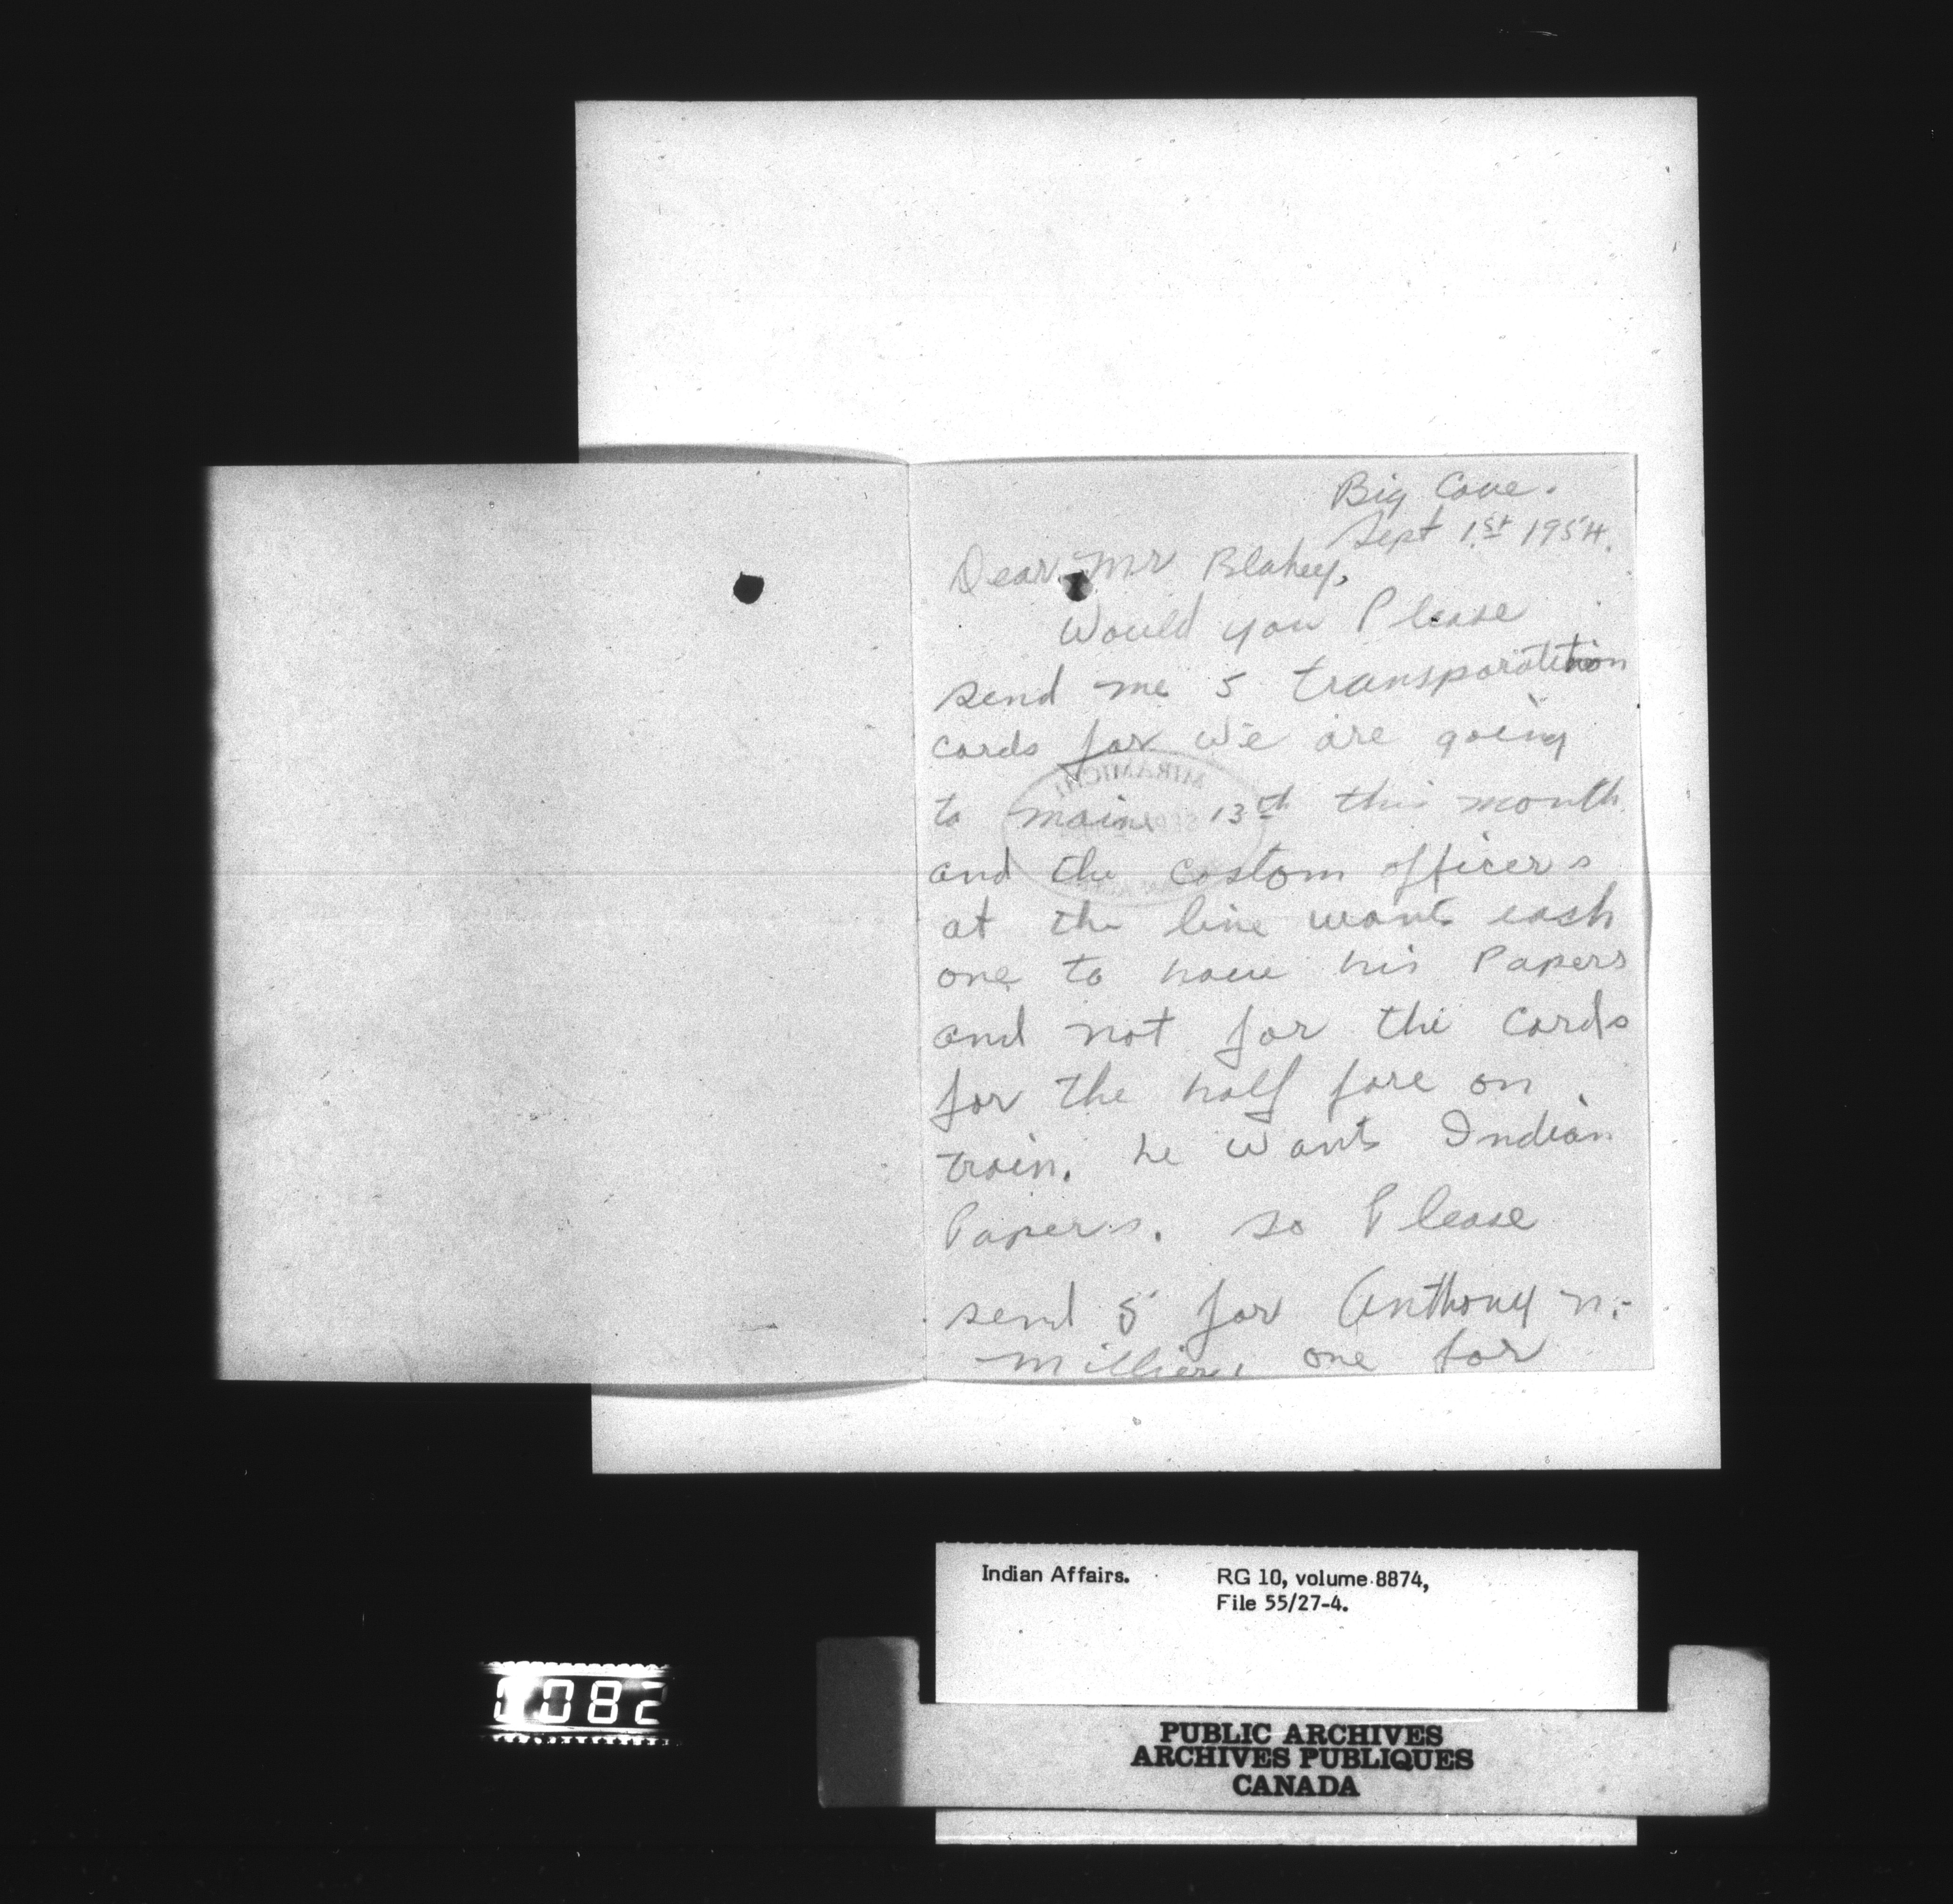 Big Cove.
Sept 1st 1954.
Dear Mr Blakey,
Would you Please
send me 5 transporatition
cards for we are going
to maine 13th this month
and the costom officers
at the line wants each
one to have his Papers
and not for the cards
for the half fare on
train. he wants Indian
Papers. so Please
send 5 for Anthony N.
one for
MIRAMICHI
Indian Affairs. RG 10, volume 8874,
File 55/27-4.
082
PUBLIC ARCHIVES
ARCHIVES PUBLIQUES
CANADA